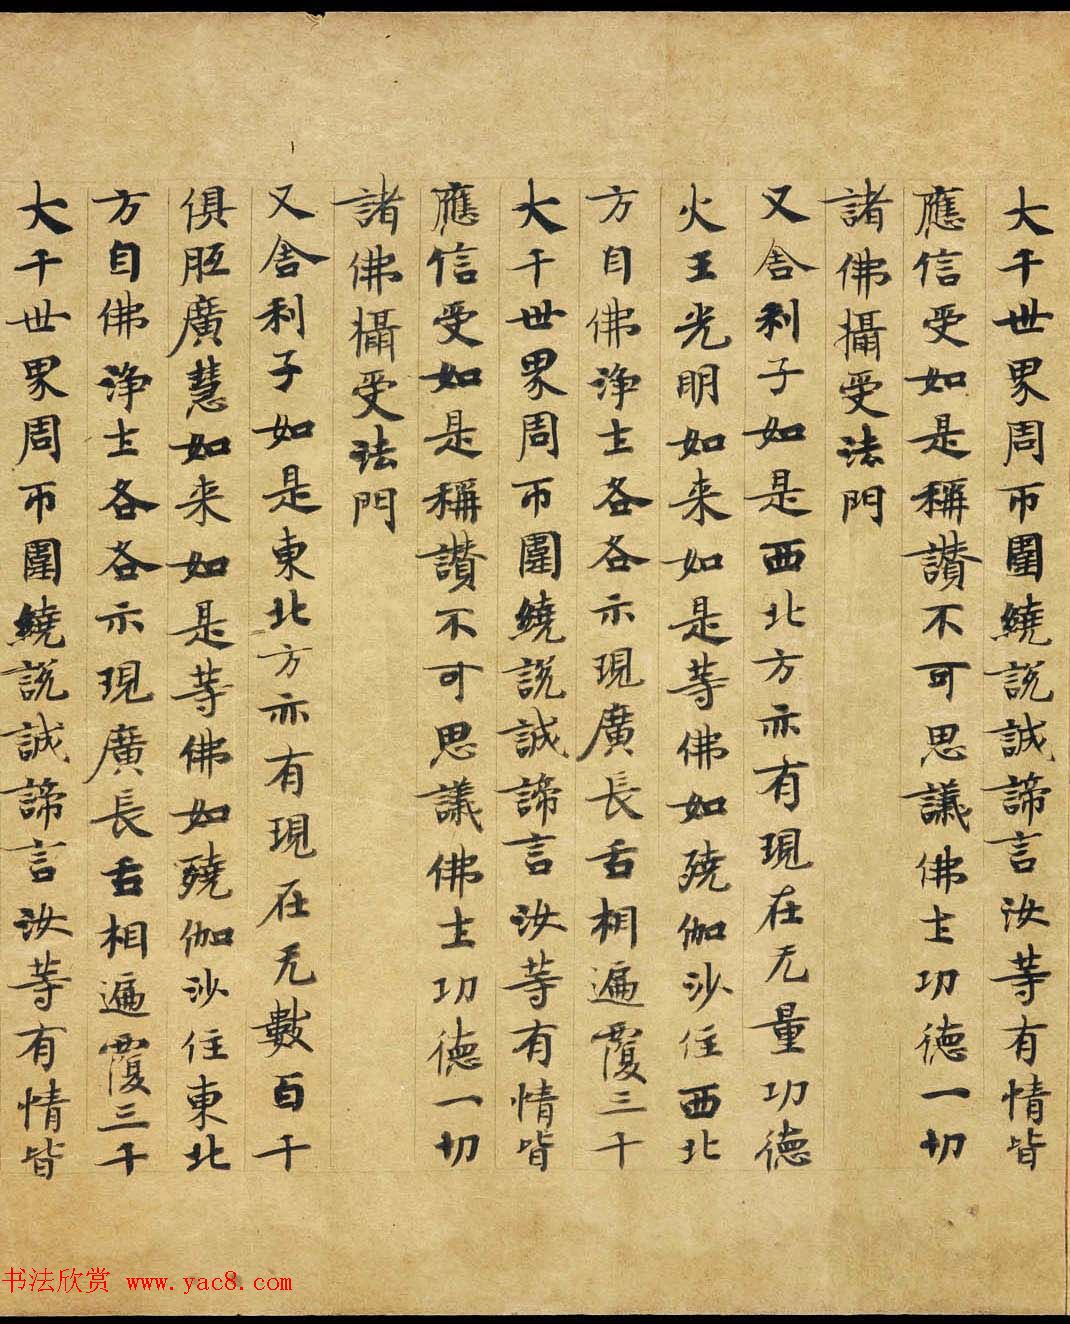 大千世界周帀圍繞說誠諦言汝等有情皆
應信受如是稱讚不可思議佛土功德一切
諸佛攝受法門
又舍利子如是西北方亦有現在无量功德
火王光明如来如是等佛如殑伽沙住西北
方自佛淨土各各示現廣長舌相遍覆三千
大千世界周帀圍繞說誠諦言汝等有情皆
應信受如是稱讚不可思議佛土功德一切
諸佛攝受法門
又舍利子如是東北方亦有現在无數百千
俱胝廣慧如来如是等佛如殑伽沙住東北
方自佛淨土各各示現廣長舌相遍覆三千
大千世界周帀圍繞說誠諦言汝等有情皆
书法欣赏 www.yac8.com